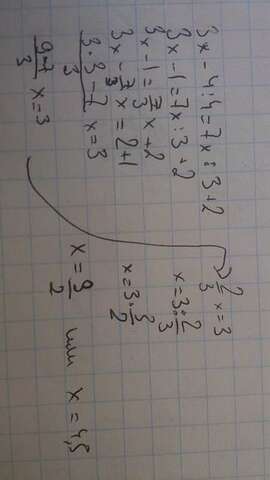 3x - 4:4 = 7x : 3 + 2
3x - 1 = 7x : 3 + 2
3x - 1 = 7/3 x + 2
3x - 7/3 x = 2 + 1
(3·3 - 7)/3 x = 3
(9-7)/3 x = 3
2/3 x = 3
x = 3 : 2/3
x = 3 · 3/2
x = 9/2 или x = 4,5